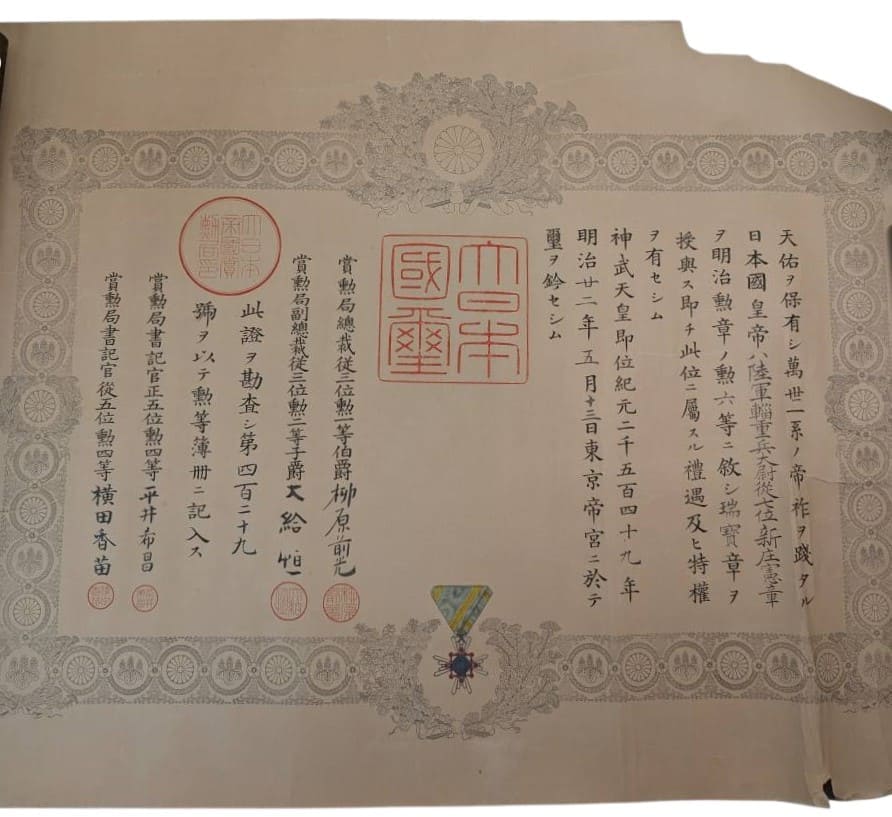 天佑ヲ保有シ萬世一系ノ帝祚ヲ踐タル
日本國皇帝ハ陸軍輜重兵大尉從七位新庄憲章
ヲ明治勲章ノ勲六等ニ敘シ瑞寶章ヲ
授與ス即チ此位ニ屬スル禮遇及ヒ特權
ヲ有セシム
神武天皇即位紀元二千五百四十九年
明治廿二年五月十三日東京帝宮ニ於テ
璽ヲ鈐セシム
大日本
國璽
賞勲局總裁從三位勲一等伯爵柳原前光
賞勲局副總裁從三位勲二等子爵大給恒
此證ヲ勘査シ第四百二十九
號ヲ以テ勲等簿册ニ記入ス
大日本
帝國賞
勲局印
賞勲局書記官正五位勲四等平井希昌
賞勲局書記官從五位勲四等横田香苗